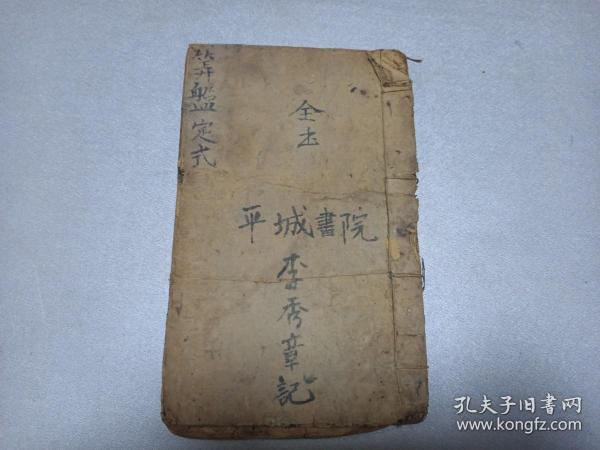 算盤定式
全本
平城書院
李秀章記
孔夫子旧书网
www.kongfz.com